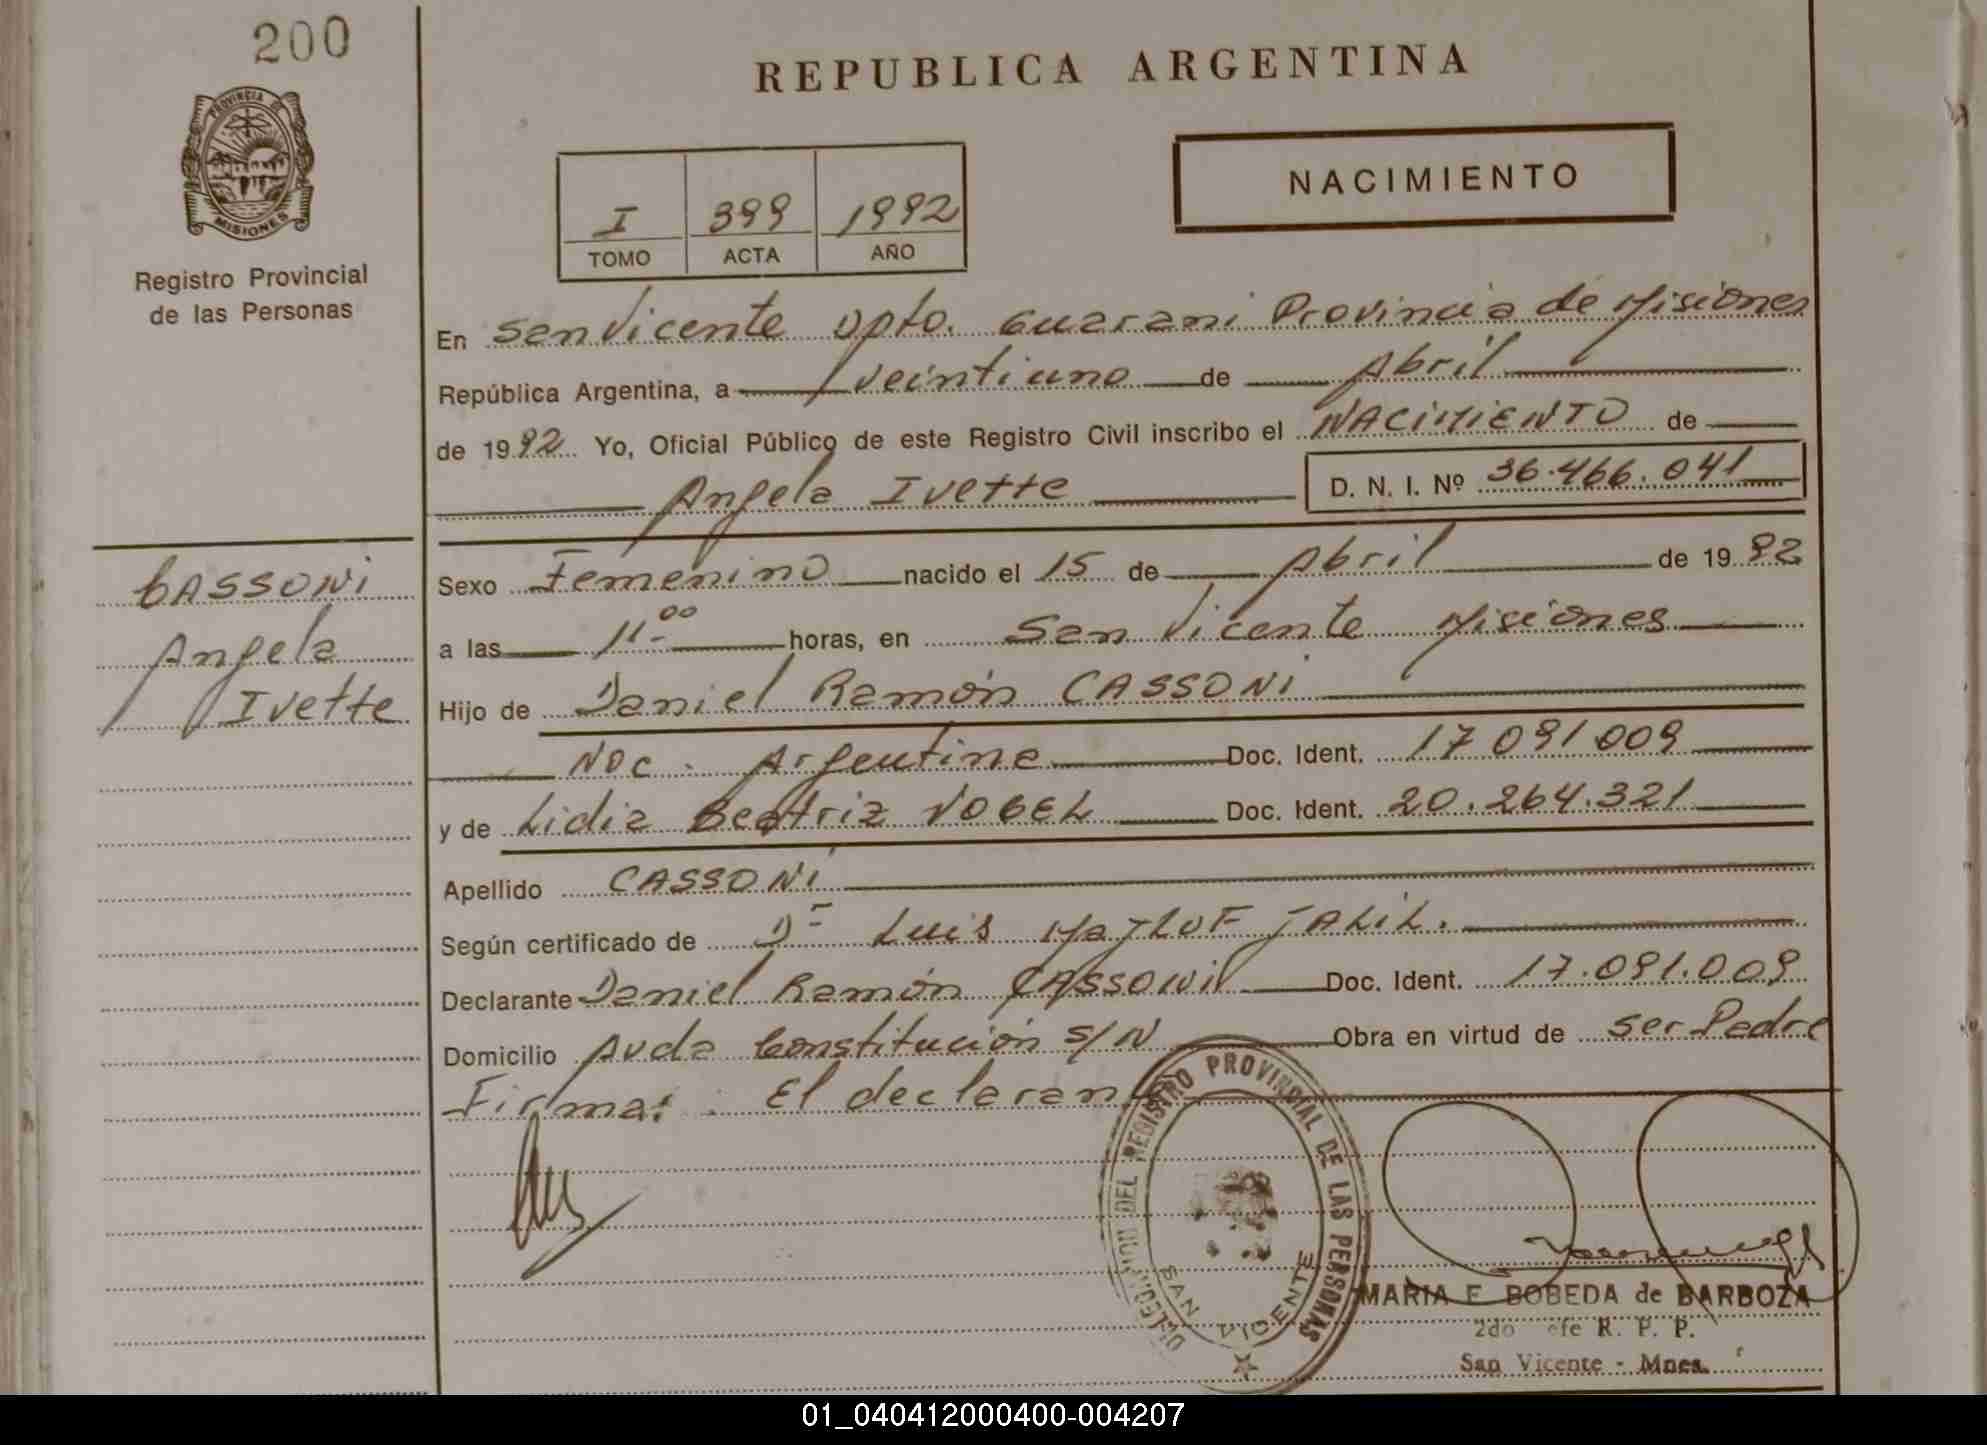 200
REPUBLICA ARGENTINA
PROVINCIA DE
MISIONES
Registro Provincial
de las Personas
NACIMIENTO
I 399 1992
TOMO ACTA AÑO
En San Vicente Dpto. Guarani Provincia de Misiones
República Argentina, a veintiuno de Abril
de 1992 Yo, Oficial Público de este Registro Civil inscribo el NACIMIENTO de
Angela Ivette D. N. I. Nº 36.466.041
CASSONI
Angela
Ivette
Sexo Femenino nacido el 15 de Abril de 1992
a las 11.00 horas, en San Vicente Misiones
Hijo de Daniel Ramón CASSONI
Nac. Argentina Doc. Ident. 17 091 009
y de Lidia Beatriz NOGEL Doc. Ident. 20.264.321
Apellido CASSONI
Según certificado de Dr Luis JALIL.
Declarante Daniel Ramón CASSONI Doc. Ident. 17.091.009
Domicilio Avda Constitución S/N Obra en virtud de ser Padre
Firma: El declaran
DELEGACION DEL REGISTRO PROVINCIAL DE LAS PERSONAS
SAN VICENTE
MARIA E BOBEDA de BARBOZA
2do efe R. P. P.
San Vicente - Mnes.
01_040412000400-004207